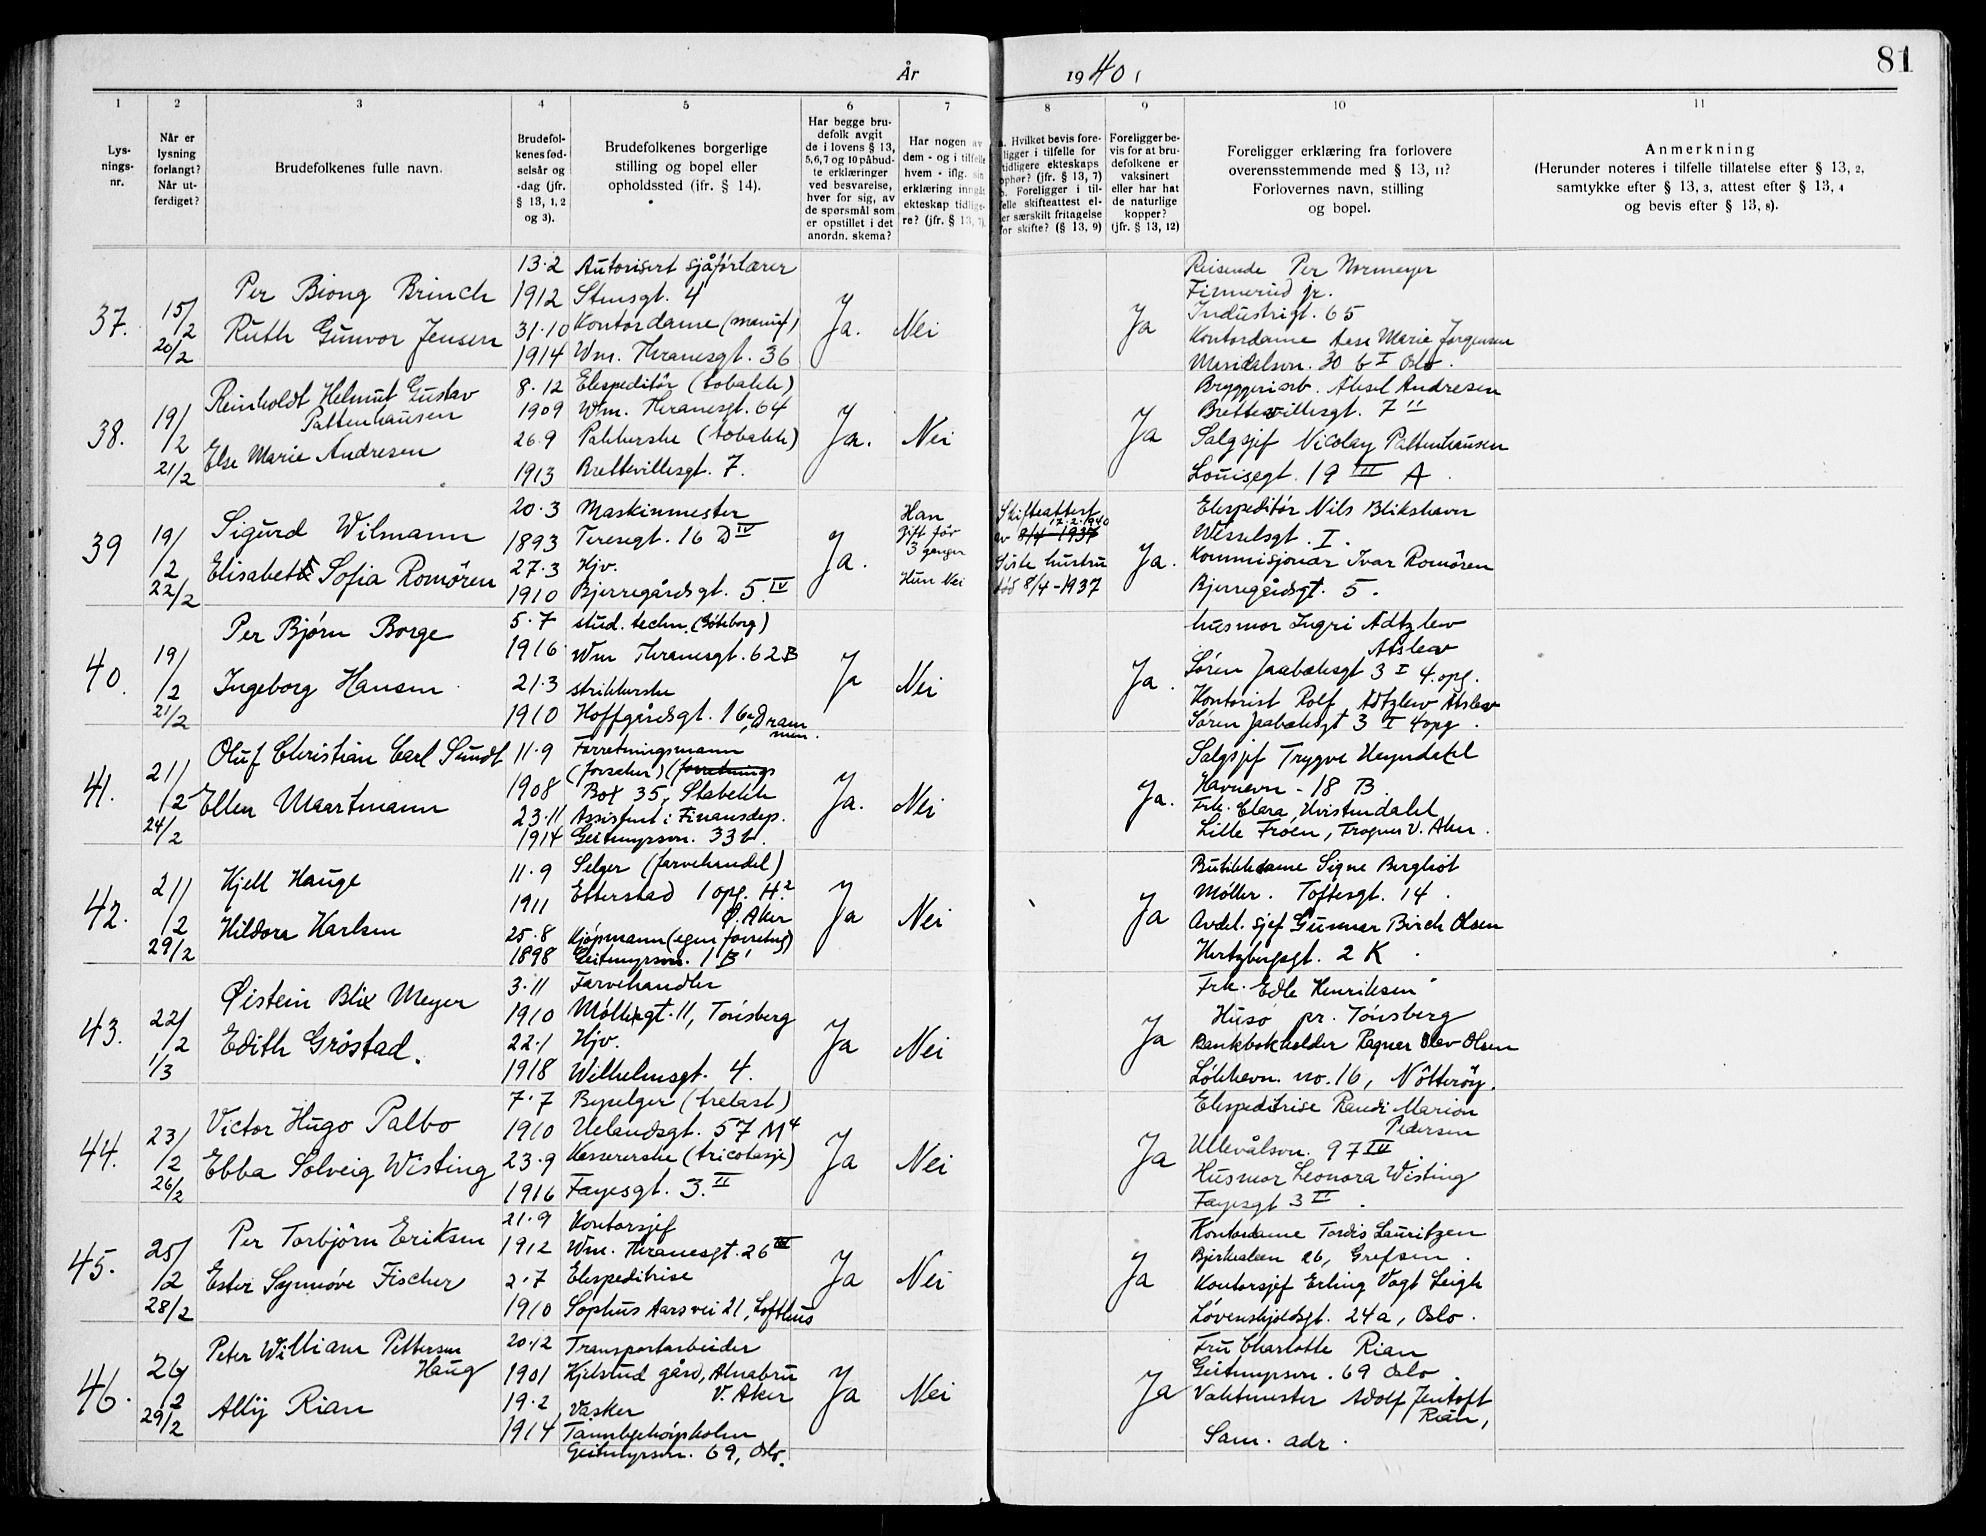 81
År 1940.
1 2 3 4 5 6 7 8 9 10 11
Lys-
nings-
nr.
Når er
lysning
forlangt?
Når ut-
ferdiget?
Brudefolkenes fulle navn.
Brudefol-
kenes fød-
selsår og
-dag (jfr.
§ 13, 1, 2
og 3).
Brudefolkenes borgerlige
stilling og bopel eller
opholdssted (jfr. § 14).
Har begge bru-
defolk avgit
de i lovens § 13,
5,6,7 og 10 påbud-
te erklæringer
ved besvarelse,
hver for sig, av
de spørsmål som
er opstillet i det
anordn. skema?
Har nogen av
dem - og i tilfelle
hvem - iflg. sin
erklæring inngåt
ekteskap tidlige-
re? (jfr. § 13, 7).
a. Hvilket bevis fore-
ligger i tilfelle for
tidligere ekteskaps
ophør? (jfr. § 13, 7)
b. Foreligger i til-
felle skifteattest el-
ler særskilt fritagelse
for skifte? (§ 13, 9)
Foreligger be-
vis for at bru-
defolkene er
vaksinert
eller har hat
de naturlige
kopper?
(jfr. § 13, 12)
Foreligger erklæring fra forlovere
overensstemmende med § 13, 11?
Forlovernes navn, stilling
og bopel.
Anmerkning
(Herunder noteres i tilfelle tillatelse efter § 13, 2,
samtykke efter § 13, 3, attest efter § 13, 4
og bevis efter § 13, 8).
37.
15/2
20/2
Per Biong Brinch
Ruth Gunvor Jensen
13.2
1912
31.10
1914
Autorisert sjåførlærer
Stensgt. 4
Kontordame (manuf)
Wm. Thranesgt. 36
Ja.
Nei
Ja
Reisende Per Normeyer
Finnerud jr.
Industrigt. 65
Kontordame Aase Marie Jørgensen
Maridalsvn. 30 b I Oslo.
38.
19/2
21/2
Reinholdt Helmut Gustav
Paltenhausen
Else Marie Andresen
8.12
1909
26.9
1913
Ekspeditør (tobakk)
Wm. Thranesgt. 64
Pakkerske (tobakk)
Brettevillesgt. 7.
Ja.
Nei
Ja
Bryggeriarb. Aksel Andresen
Brettevillesgt. 7 II
Salgsjef Nicolay Paltenhausen
Louisegt. 19 III A
39
19/2
22/2
Sigurd Wilmann
Elisabeth Sofia Romören
20.3
1893
27.3
1910
Maskinmester
Teresegt. 16 D IV
Hjv.
Bjerregårdsgt. 5 IV
Ja.
Han
gift før
3 ganger
Hun Nei
Skifteattest
12.2.1940
av 8/4-1937
Siste hustru
død 8/4-1937
Ja.
Ekspeditør Nils Blikshavn
Wesselsgt. I.
Kommisjonær Ivar Romören
Bjerregårdsgt. 5.
40.
19/2
21/2
Per Bjørn Borge
Ingeborg Hansen
5.7
1916
21.3
1910
stud. techn. (Göteborg)
Wm Thranesgt. 62B
strikkerske
Hoffgårdsgt. 16, Dram
men.
Ja
Nei
Ja.
husmor Ingri Adtzlew
Atslew
Søren Jaabæksgt 3 I 4. opg.
Kontorist Rolf Adtzlew Atslew
Søren Jaabæksgt 3 I 4opg.
41.
21/2
24/2
Oluf Christian Carl Sundt
Ellen Maartmann
11.9
1908
23.11
1914
Forretningsmann
(forsker) (forretnings
Box 35, Stabekk
Assistent i Finansdep.
Geitmyrsvn. 33b.
Ja.
Nei
Ja.
Salgsjef Trygve Heyndahl
Havnevn - 18 B.
Frk. Clara Kvistendahl
Lille Frøen, Frogner V. Aker.
42.
21/2
29/2
Kjell Hauge
Hildora Karlsen
11.9
1911
25.8
1898
Selger (farvehandel)
Etterstad 1 opg. H.2
Ø. Aker
Kjøpmann (egen forretng)
Geitmyrsvn. 1 B
Ja
Nei
Ja
Butikkdame Signe Bergliot
Møller. Toftesgt. 14.
Avdel. sjef Gunnar Birch Olsen
Hertzbergsgt. 2 K.
43.
22/2
1/3
Øistein Blix Meyer
Edith Gröstad.
3.11
1910
22.1
1918
Farvehandler
Møllegt. 11, Tønsberg
Hjv.
Wilhelmsgt. 4.
Ja
Nei
Ja
Frk. Edle Henriksen
Husø pr. Tønsberg
Bankbokholder Ragnar Olav Olsen
Løkkevn. no. 16, Nötteröy.
44.
23/2
26/2
Victor Hugo Palbo
Ebba Solveig Wisting
7.7
1910
23.9
1916
Byselger (trelast)
Uelandsgt. 57 M4
Kassererske (tricotasje)
Fayesgt. 3. II
Ja
Nei
Ja
Ekspeditrise Randi Marion
Pedersen
Ullevålsvn. 97 IV
Husmor Leonora Wisting
Fayesgt 3 II.
45.
25/2
28/2
Per Torbjörn Eriksen
Ester Synnøve Fischer
21.9
1912
2.7
1910
Kontorsjef
Wm. Thranesgt. 26 III
Ekspeditrise
Sophus Aars vei 21, Lofthus
Ja
Nei
Ja
Kontordame Tordis Lauritzen
Bjerkealeen 26, Grefsen.
Kontorsjef Erling Vogt Leigh
Løvenskjoldsgt. 24a, Oslo.
46.
26/2
29/2
Peter William Pettersen
Haug
Ally Rian
20.12
1901
19.2
1914
Transportarbeider
Kjelsrud gård, Alnabru
V. Aker
Vasker
Geitmyrsvn. 69, Oslo.
Ja
Nei
Ja
Fru Charlotte Rian
Geitmyrsvn. 69 Oslo.
Vaktmester Adolf Jentoft
Rian,
Sam. adr.